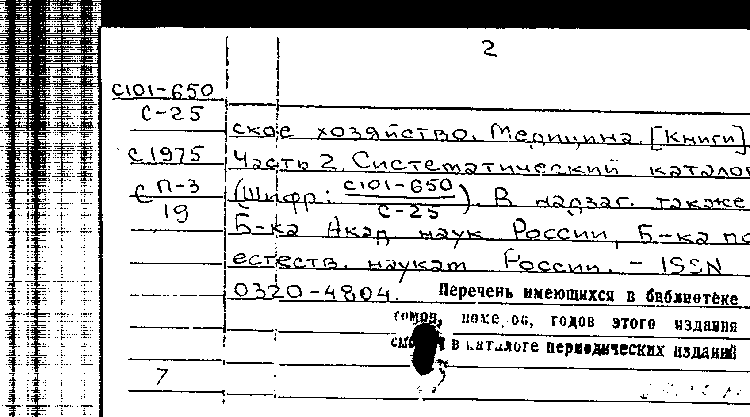 2
С101-650
С-25
ское хозяйство. Медицина. [Книги]
С1975
Часть 2. Систематический катало
С П-3
19
(Шифр: С101-650
С-25). В надзаг. также
Б-ка Акад. наук России, Б-ка по
естеств. наукам России. - ISSN
0320-4804. Перечень имеющихся в библиотеке
годов этого издания
в каталоге периодических изданий
7